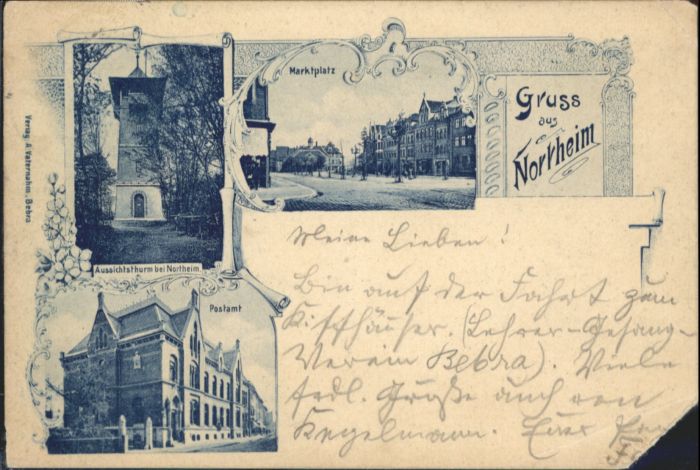 Marktplatz
Gruss
aus
Northeim
Verlag A. Vaternahm, Bebra
Aussichtsthurm bei Northeim.
Postamt
Meine Lieben!
Bin auf der Fahrt zum
Kiffhäuser. (Lehrer-Gesang-
Verein Bebra). Viele
frdl. Grüße auch von
Kegelmann. Euer